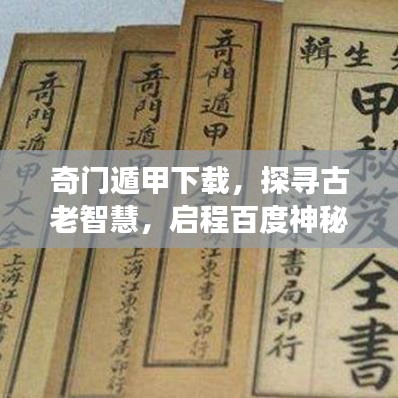 奇門遁甲大全
上海江東書局
奇門遁甲
上海江東書局印行
奇門遁甲
江東書局印行
輯生
甲秘笈全書
上海江東書局印行
奇门遁甲下载，探寻古
老智慧，启程百度神秘